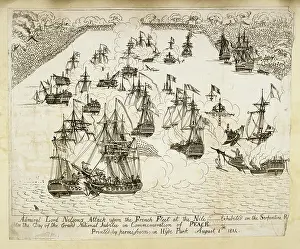 Admiral Lord Nelsons Attack upon the French Fleet at the Nile Exhibited on the Serpentine
on the Day of the Grand National Jubilee in Commemoration of PEACE
Printed by in Hyde Park August 1st